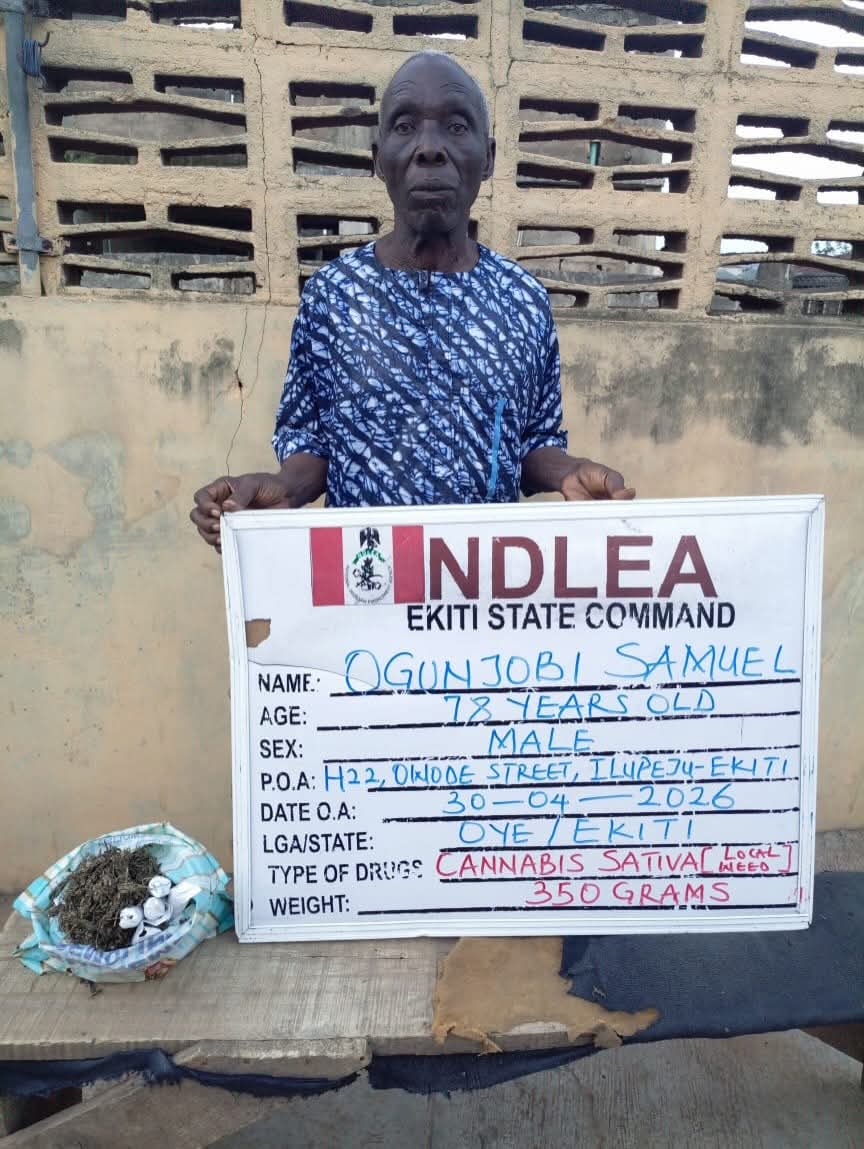 NDLEA
EKITI STATE COMMAND
NAME: OGUNJOBI SAMUEL
AGE: 78 YEARS OLD
SEX: MALE
P.O.A: H22, OWODE STREET, ILUPEJU-EKITI
DATE O.A: 30-04-2026
LGA/STATE: OYE/EKITI
TYPE OF DRUGS CANNABIS SATIVA [LOCAL WEED]
WEIGHT: 350 GRAMS